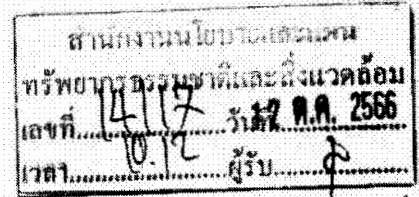 สำนักงานนโยบายและแผน
ทรัพยากรธรรมชาติและสิ่งแวดล้อม
เลขที่ 14117 วันที่ 12 ต.ค. 2566
เวลา 10.12 ผู้รับ